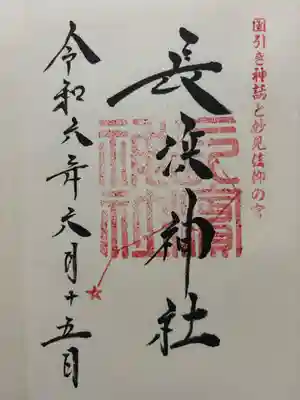 國引き神話と妙見信仰の宮
長浜神社
長濱神社
令和六年六月十五日